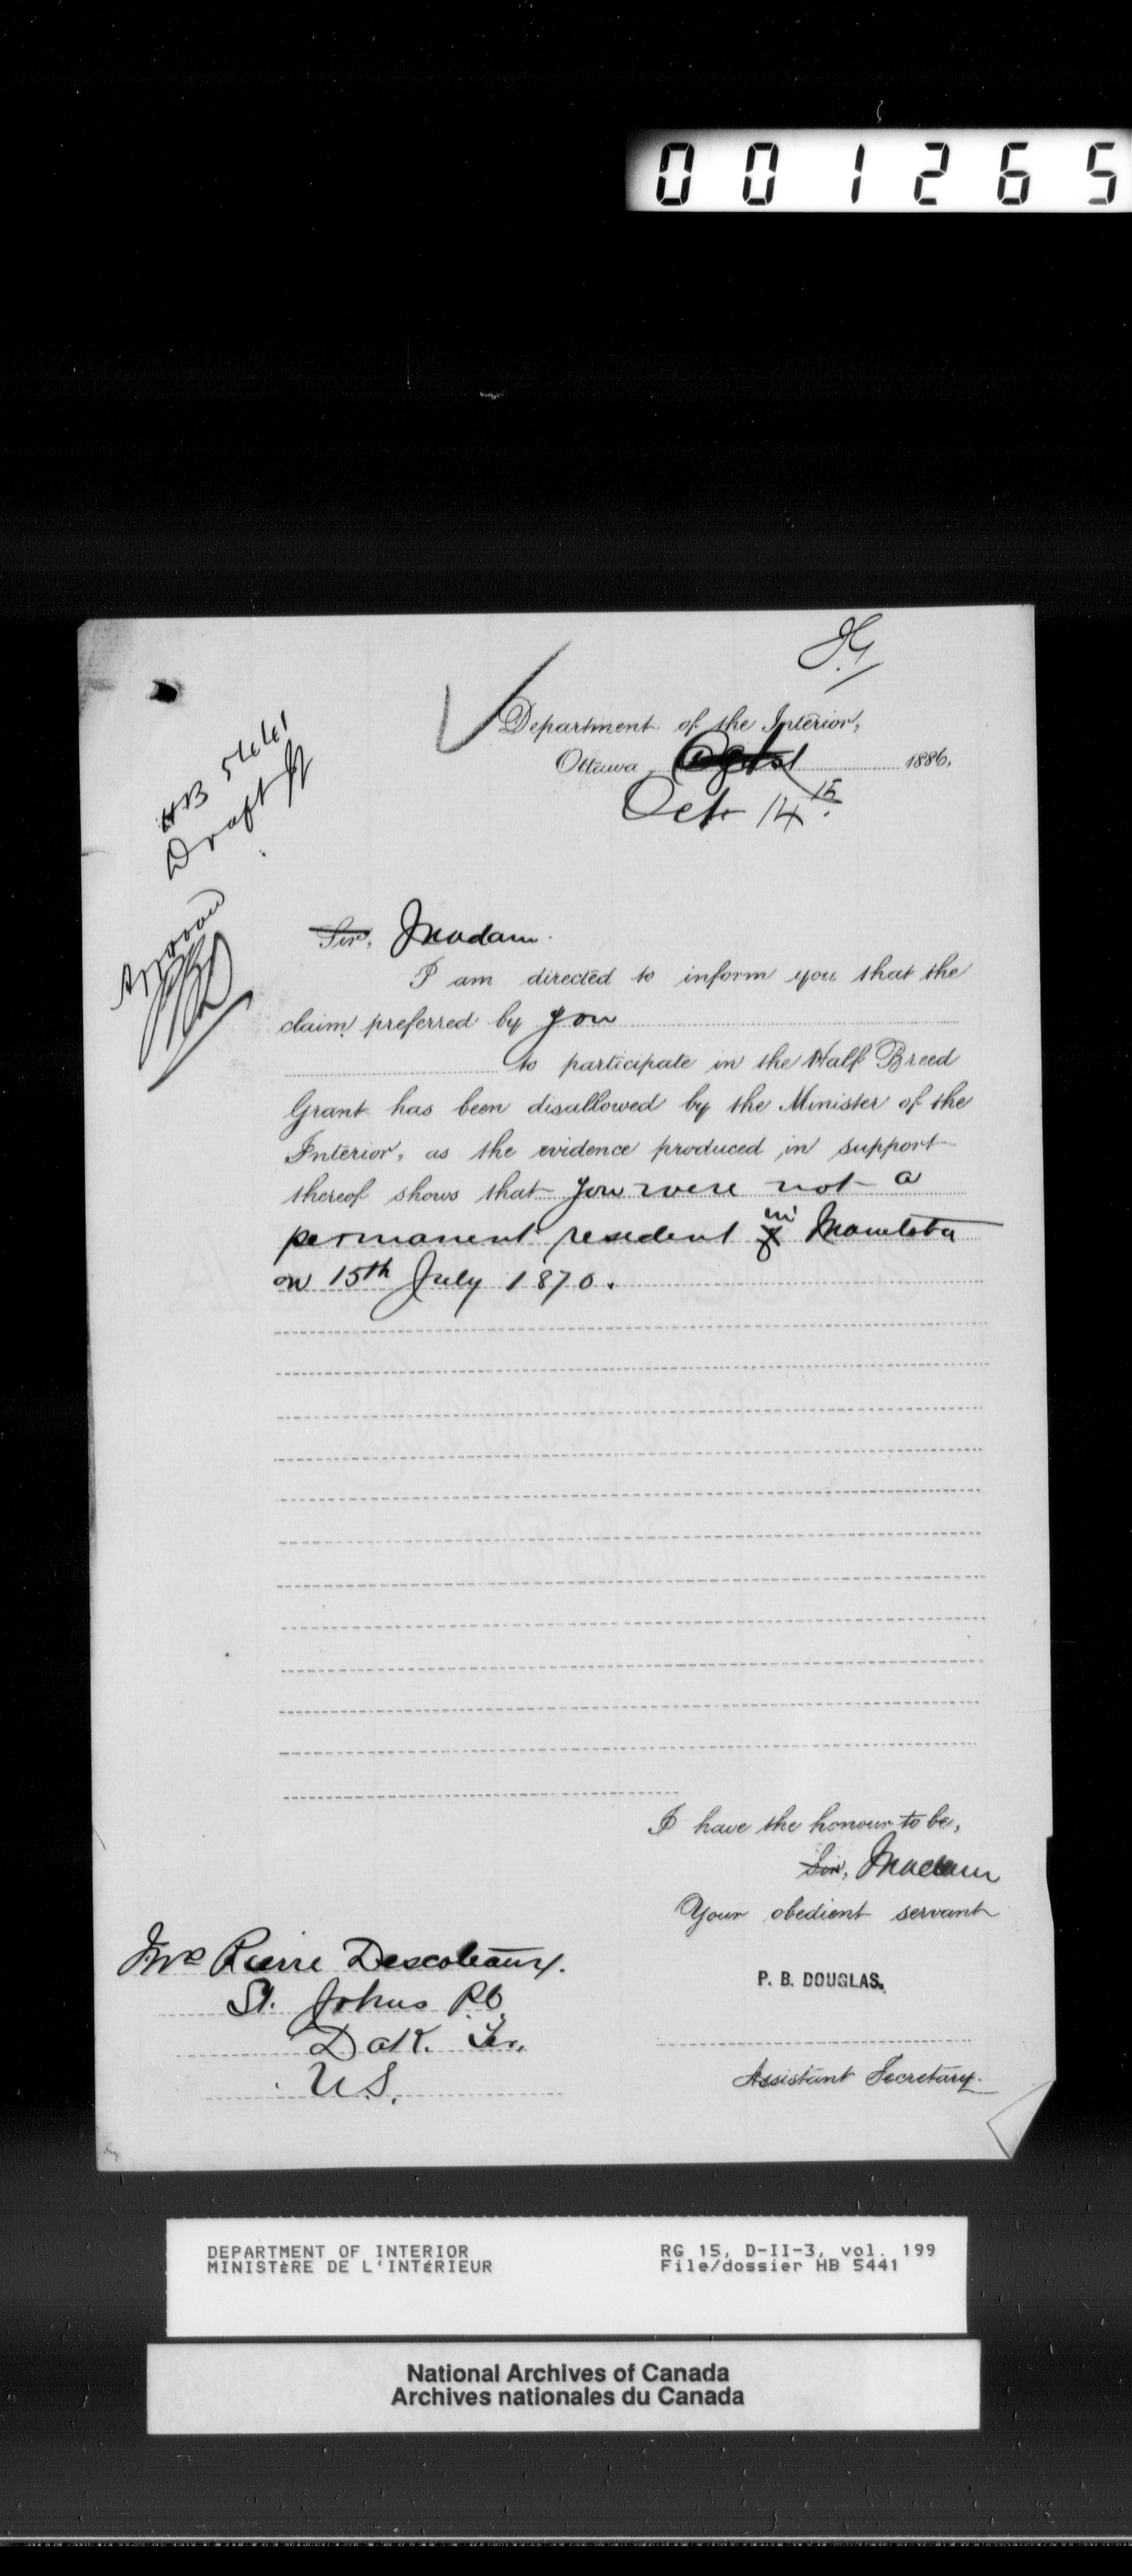 001265
Department of the Interior,
Ottawa 1886,
Oct 14th.
HB 5441
Draft
Approved
Sir, Madam.
I am directed to inform you that the
claim preferred by you
to participate in the Half Breed
Grant has been disallowed by the Minister of the
Interior, as the evidence produced in support
thereof shows that you were not a
permanent resident in Manitoba
on 15th July 1870.
I have the honour to be,
Sir, Madam
Your obedient servant
P. B. DOUGLAS.
Assistant Secretary.
Mrs Pierre Descoteaux.
St. Johns P.O.
Dak. Ter.
U.S.
DEPARTMENT OF INTERIOR
MINISTÈRE DE L'INTÉRIEUR
RG 15, D-II-3, vol. 199
File/dossier HB 5441
National Archives of Canada
Archives nationales du Canada